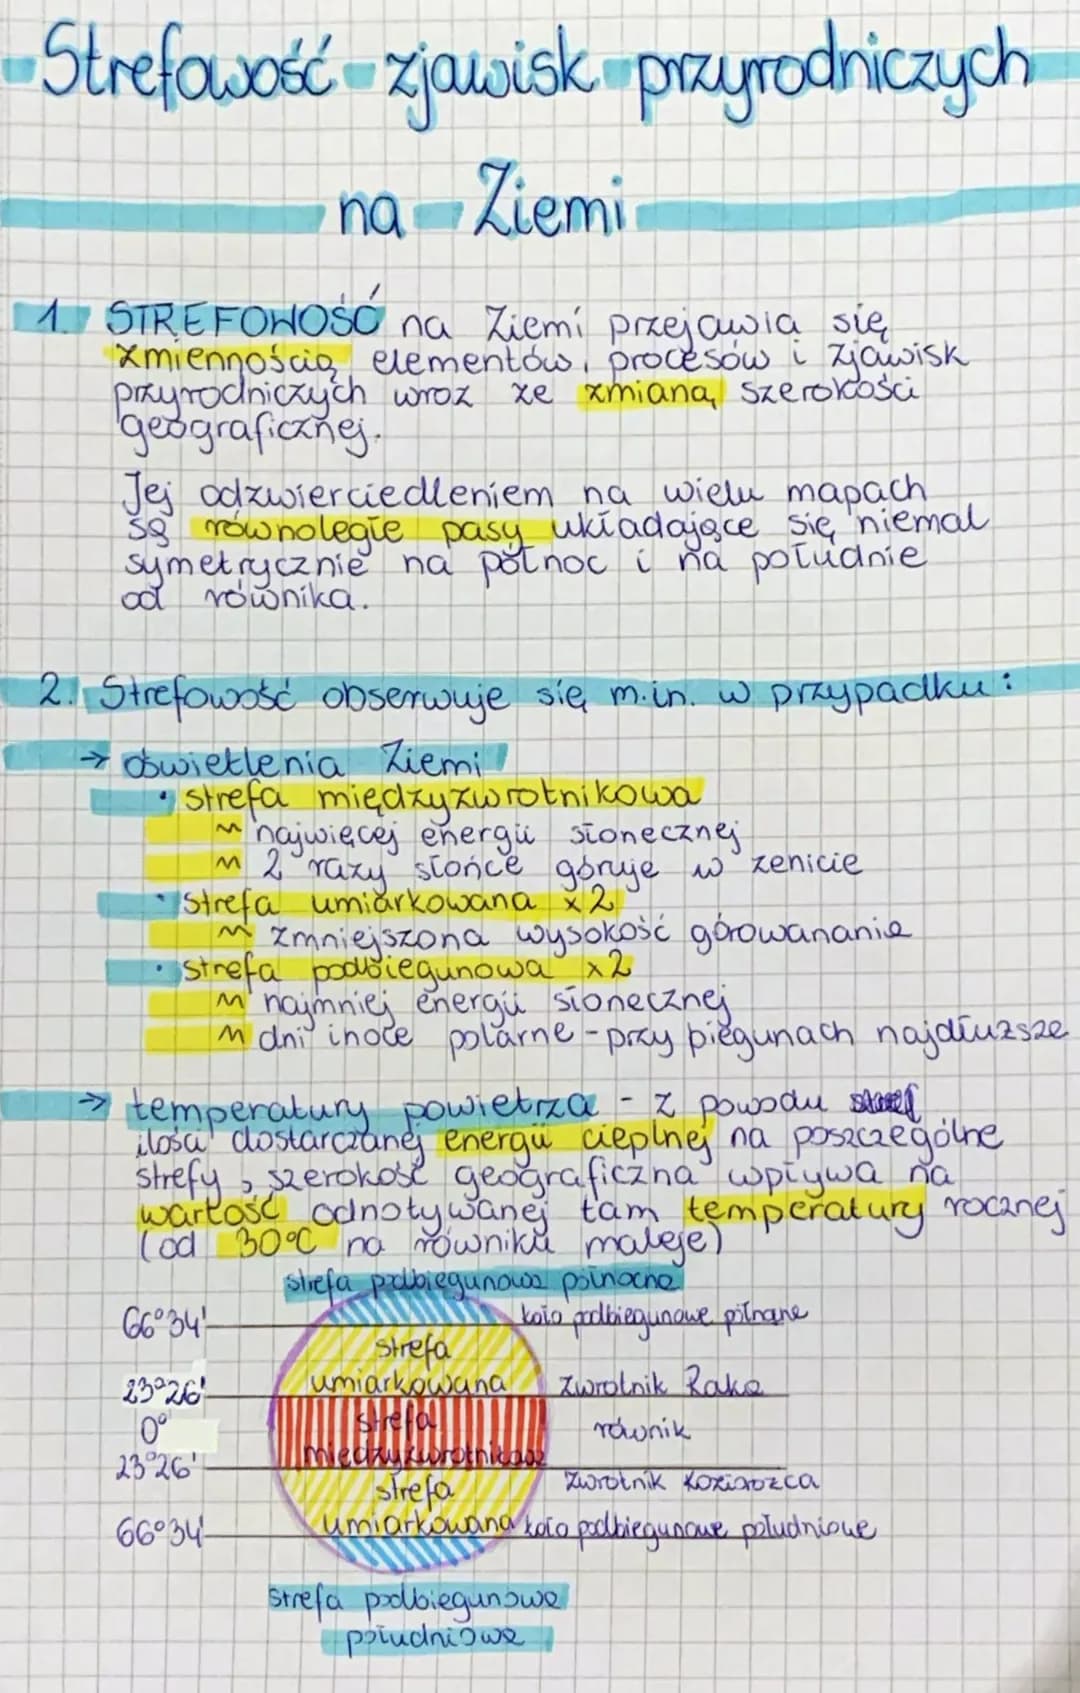 Strefowość zjawisk przyrodniczych
na Ziemi
1. STREFOWOŚĆ na Ziemi przejawia się
zmiennością elementów, procesów i zjawisk
przyrodniczych wroz ze zmianą szerokości
geograficznej.
Jej odzwierciedleniem na wielu mapach
są równoległe pasy układające się niemal
symetrycznie na północ i na południe
od równika.
2. Strefowość obserwuje się m.in. w przypadku:
→ oświetlenia Ziemi
• strefa międzyzwrotnikowa
~ najwięcej energii słonecznej
~ 2 razy słońce góruje w zenicie
• strefa umiarkowana x2
~ zmniejszona wysokość górowanania
• strefa podbiegunowa x2
~ najmniej energii słonecznej
~ dni i noce polarne - przy biegunach najdłuższe
→ temperatury powietrza - z powodu
ilości dostarczanej energii cieplnej na poszczególne
strefy, szerokość geograficzna wpływa na
wartość odnotywanej tam temperatury rocznej
(od 30°C na równiku maleje)
strefa podbiegunowa północna
66°34' koło podbiegunowe płnane
strefa
umiarkowana
23°26' Zwrotnik Raka
0° strefa równik
międzyzwrotnikowa
23°26' Zwrotnik Koziorożca
strefa
umiarkowana
66°34' koło podbiegunowe południowe
strefa podbiegunowa
południowa